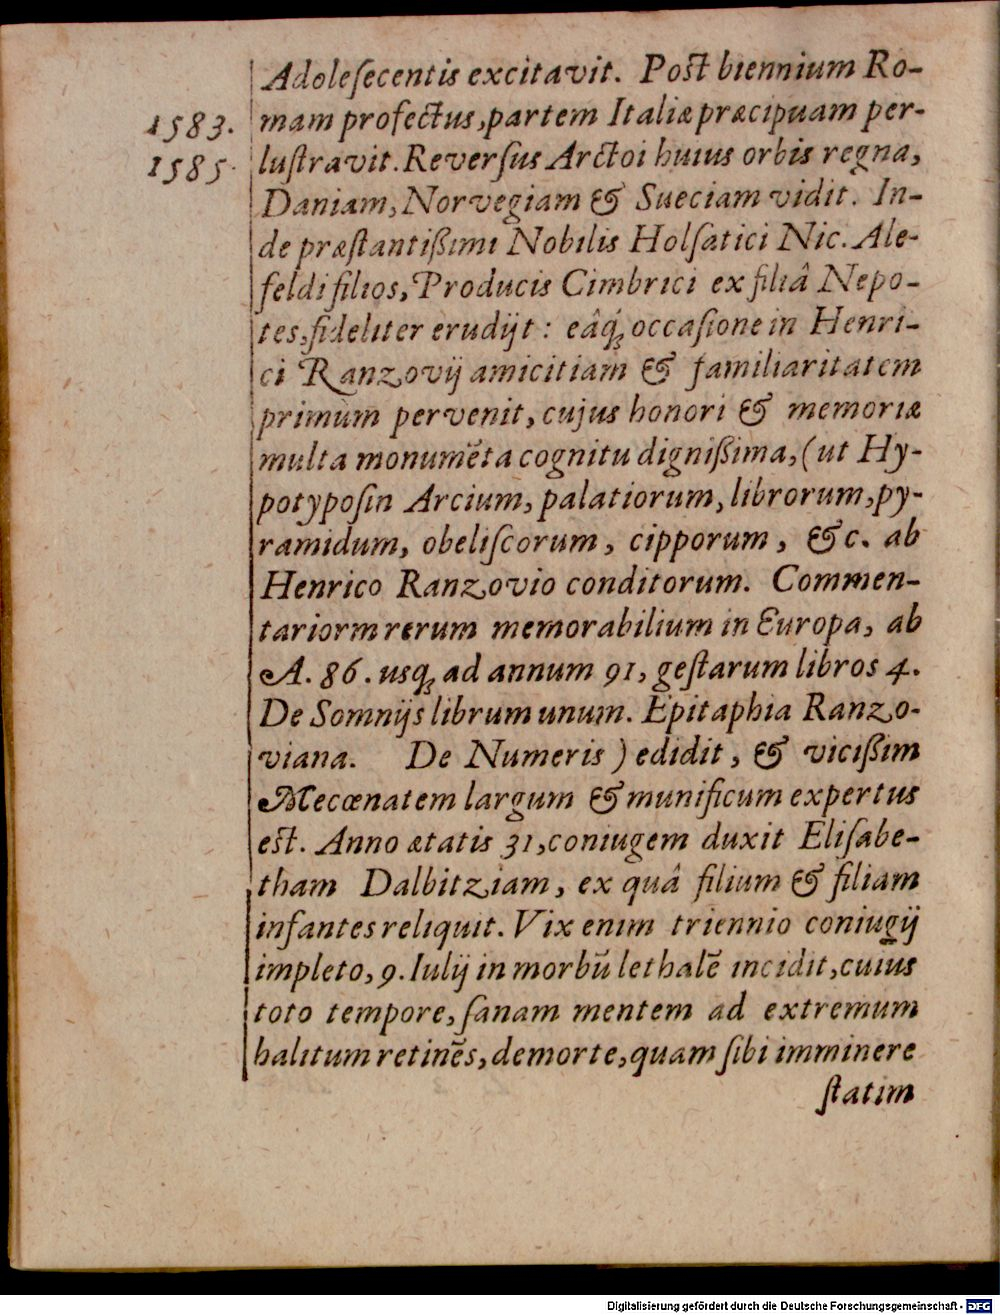 Adoleſecentis excitavit. Poſt biennium Ro-
1583. mam profectus, partem Italiæ præcipuam per-
1585. luſtravit. Reverſus Arctoi huius orbis regna,
Daniam, Norvegiam & Sueciam vidit. In-
de præſtantißimi Nobilis Holſatici Nic. Ale-
feldi filios, Producis Cimbrici ex filiâ Nepo-
tes, fideliter erudijt: eâq́ꝫ occaſione in Henri-
ci Ranzovij amicitiam & familiaritatem
primùm pervenit, cujus honori & memoriæ
multa monumẽta cognitu dignißima, (ut Hy-
potypoſin Arcium, palatiorum, librorum, py-
ramidum, obeliſcorum, cipporum, &c. ab
Henrico Ranzovio conditorum. Commen-
tariorm rerum memorabilium in Europa, ab
A. 86. usqꝫ ad annum 91, geſtarum libros 4.
De Somnijs librum unum. Epitaphia Ranzo-
viana. De Numeris) edidit, & vicißim
Mecœnatem largum & munificum expertus
eſt. Anno ætatis 31, coniugem duxit Eliſabe-
tham Dalbitziam, ex quâ filium & filiam
infantes reliquit. Vix enim triennio coniugij
impleto, 9. Iulij in morbũ lethalẽ incidit, cuius
toto tempore, ſanam mentem ad extremum
halitum retinẽs, demorte, quam ſibi imminere
ſtatim
Digitalisierung gefördert durch die Deutsche Forschungsgemeinschaft - DFG